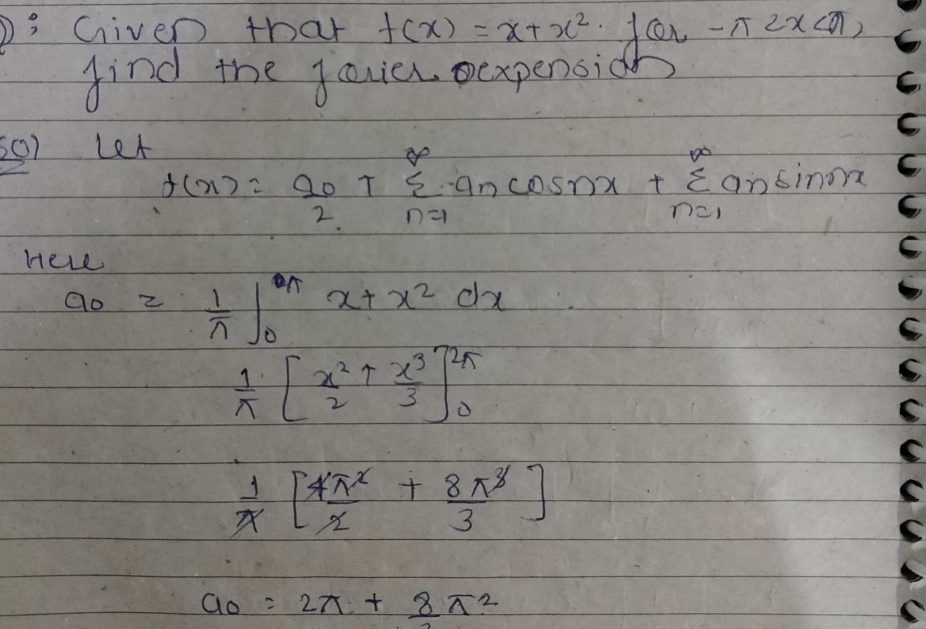 Q: Given that f(x) = x+x². for -π<x<π,
find the forier expension
Sol Let
f(x) = a0/2 + Σ n=1 ∞ an cosnx + Σ n=1 ∞ an sinnx
Here
a0 = 1/π ∫0 2π x+x² dx
1/π [x²/2 + x³/3]0 2π
1/π [4π²/2 + 8π³/3]
a0 = 2π + 8/3 π²